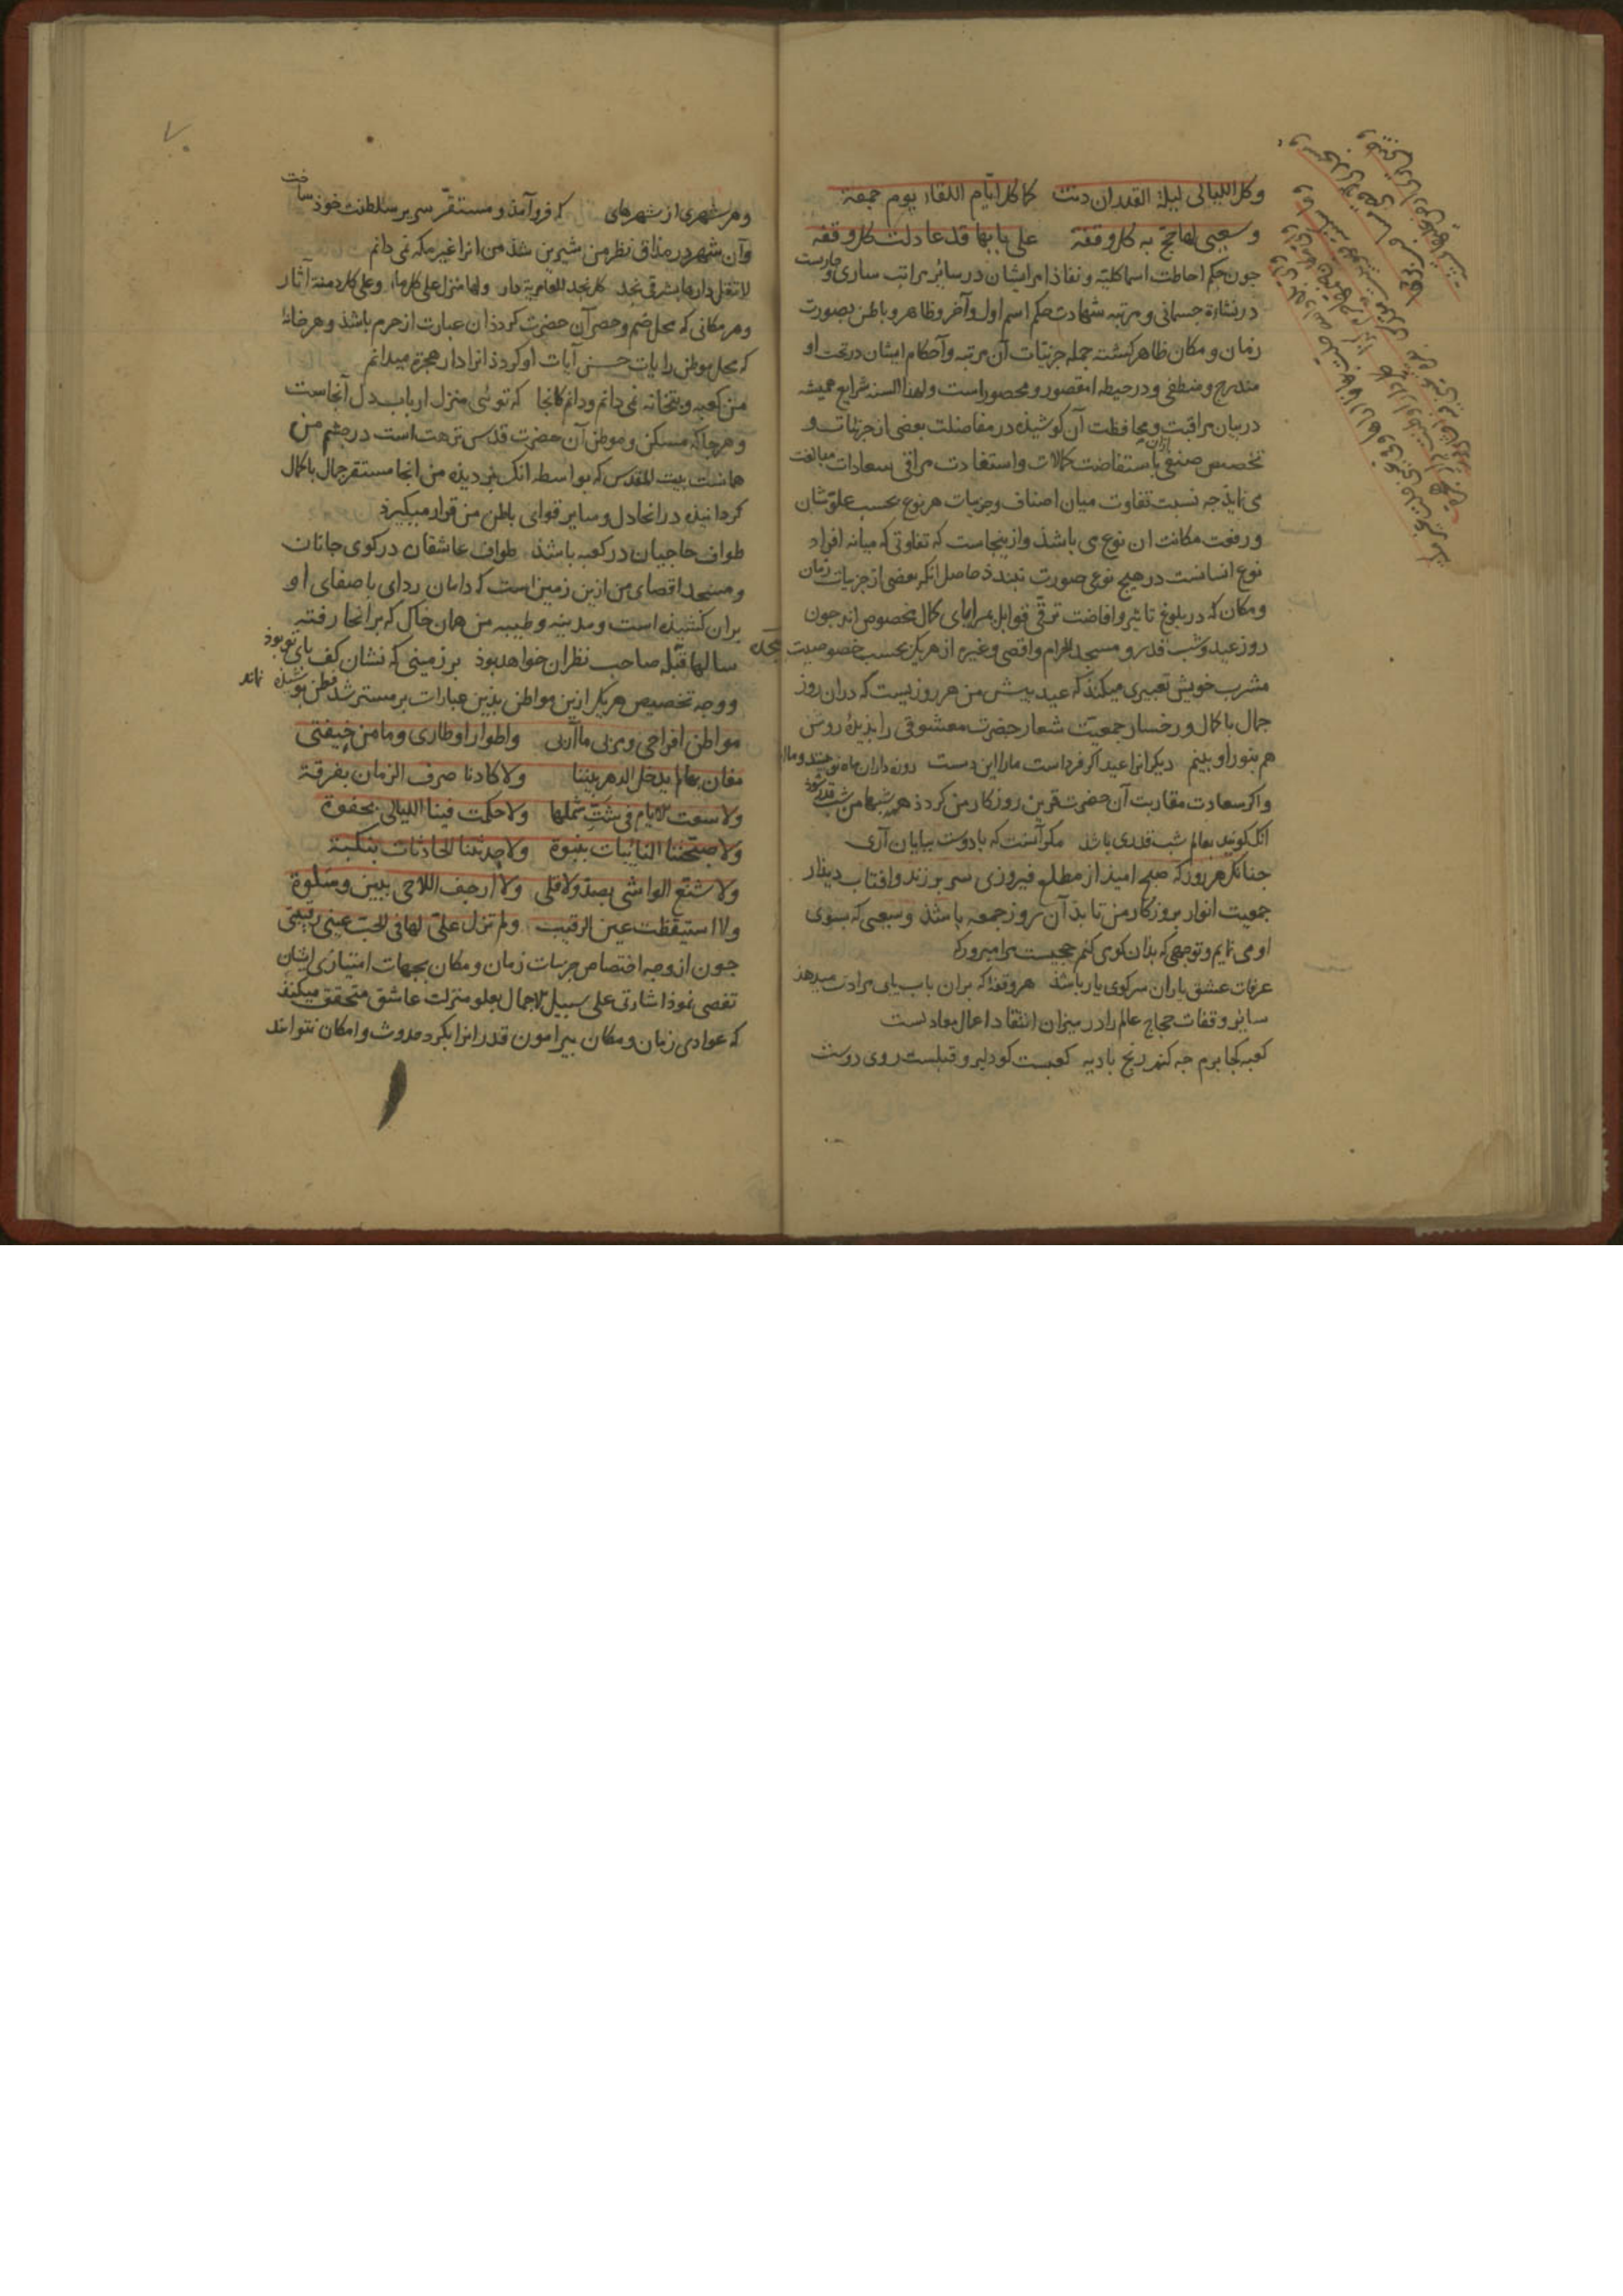 وكل الليالى ليلة القدر ان دنت كما كل ايّام اللقاء يوم جمعة
وسعيى لها حج به كل وقفة على بابها قد عادلت كل وقفه
چون حكم احاطت اسما كليه و نفاذ امر ايشان در سائر مراتب سارى و جاريست
در نشأة جسمانى و مرتبه شهادت حكم اسم اول و آخر و ظاهر و باطن بصورت
زمان و مكان ظاهر كشته جمله جزئيات آن مرتبه و آحكام ايشان در تحت او
مندرج و منطفى و در حيطه او مقصور و محصور است و لهذا السنه شرايع هميشه
در بيان مراقبت و محافظت آن كوشيذه در مفاضلت بعضى از جزئيات و
تخصيص صنفى از ان باستفاضت كمالات و استفادت مراقى سعادات مبالغت
مى نمايذ چه نسبت تفاوت ميان اصناف و جزئيات هر نوع بحسب علوّ شان
و رفعت مكانت ان نوع مى باشذ و ازينجاست كه تفاوتى كه ميانه افراد
نوع انسانست در هيچ نوعى صورت نبندذ حاصل انكه بعضى از جزئيات زمان
و مكان كه در بلوغ تاثير و افاضت ترقّى قوابل بمزاياى كمال مخصوص اند چون
روز عيد و شب قدر و مسجد الحرام و اقصى و غيره از هر يك بحسب خصوصيت
مشرب خويش تعبيرى ميكند كه عيد بيش من هر روزيست كه دران روز
جمال با كمال و رخسار جمعيت شعار حضرت معشوقى را بذيذهٔ روشن
هم بنور او بينم ديكرانرا عيد اكر فرداست ما را اين دست روزه داران ماه نو بينند و ما
و اكر سعادت مقاربت آن حضرت قرين روزكار من كردذ همه شبها من شب قدر شود
انك كويند بعالم شب قدرى باشذ مكر آنست كه با دوست ببايان آرى
چنانك هر روز كه صبح اميذ از مطلع فيروزى سر بر زند و افتاب ديذار
جمعيت انوار بروزكار من تابذ آن روز جمعه باشذ و سعيى كه بسوى
او مى نمايم و توجهى كه بذان كوى كنم حجيست
عرفات عشق بازان سر كوى يار باشذ هر وقفهٔ كه بران باب بياى مرادت ميدهذ
ساير وقفات حجاج عالم را در ميزان انتقاد اعمال معادلست
كعبه كجا برم چه كنم رنج باديه كعبست كوى دلبر و قبلست روى دوست
٧
و هر شهرى از شهرهاى كه فروآمذ و مستقرّ سرير سلطنت خود ساخت
و آن شهر در مذاق نظر من شيرين شذ من انرا غير مكه نمى دانم
لا تقل دارها بشرقى نجد كل نجد للعامرية دار ولها منزل على كل ماء وعلى كل دمنة آثار
و هر مكانى كه محل ضم و حصر آن حضرت كردذ ان عبارت از حرم باشذ و هر خانهٔ
كه محل موطن رايات حسن آيات او كردذ انرا دار هجرة ميدانم
من كعبه و بتخانه نمى دانم و دانم كانجا كه توئى منزل ارباب دل آنجاست
و هرجا كه مسكن و موطن آن حضرت قدس نزهت است در چشم من
همانست بيت المقدس كه بواسطه انك نور ديذه من انجا مستقر جمال با كمال
كردانيذه در انجا دل و ساير قواى باطن من قرار ميكيرذ
طواف حاجيان در كعبه باشذ طواف عاشقان در كوى جانان
و مسجد اقصاى من ازين زمين است كه دامان رداى با صفاى او
بران كشيذه است و مدينه و طيبه من همان خاك كه بر انجا رفته
سالها قبله صاحب نظران خواهد بود بر زمينى كه نشان كف پاى تو بوذ
و وجه تخصيص هر يك ازين مواطن بذين عبارات بر مسترشد فطن پوشيذه نماند
مواطن افراحى و مربى مآربى واطوار اوطارى ومأمن خيفتى
مغان بها لم يدخل الدهر بيننا ولا كادنا صرف الزمان بفرقة
ولا سعت الايام فى شتّ شملها ولا حكمت فينا الليالى بجفوة
ولا صبّحتنا النايبات بنبوة ولا حدثتنا الحادثات بنكبة
ولا شنّع الواشى بصدّ ولا قلى ولا ارجف اللاحى ببين وسلوة
ولا استيقظت عين الرقيب ولم تزل علىّ لها فى الحب عينى رقيبتى
چون از وجه اختصاص جزئيات زمان و مكان بجهات امتيازى ايشان
تفصى نموذ اشارتى على سبيل الاجمال بعلو منزلت عاشق متحقق ميكند
كه عوادى زمان و مكان بيرامون قدر انرا بكرد حدوث و امكان نتوانند